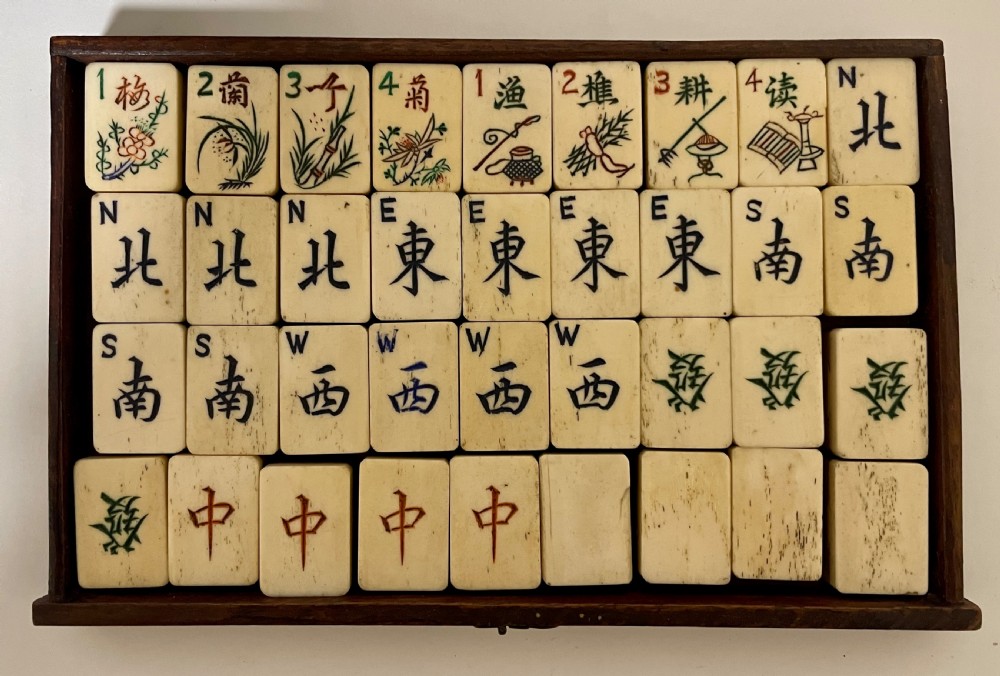 1梅 2蘭 3竹 4菊 1渔 2樵 3耕 4读 N北
N北 N北 N北 E東 E東 E東 E東 S南 S南
S南 S南 W西 W西 W西 W西 發 發 發
發 中 中 中 中